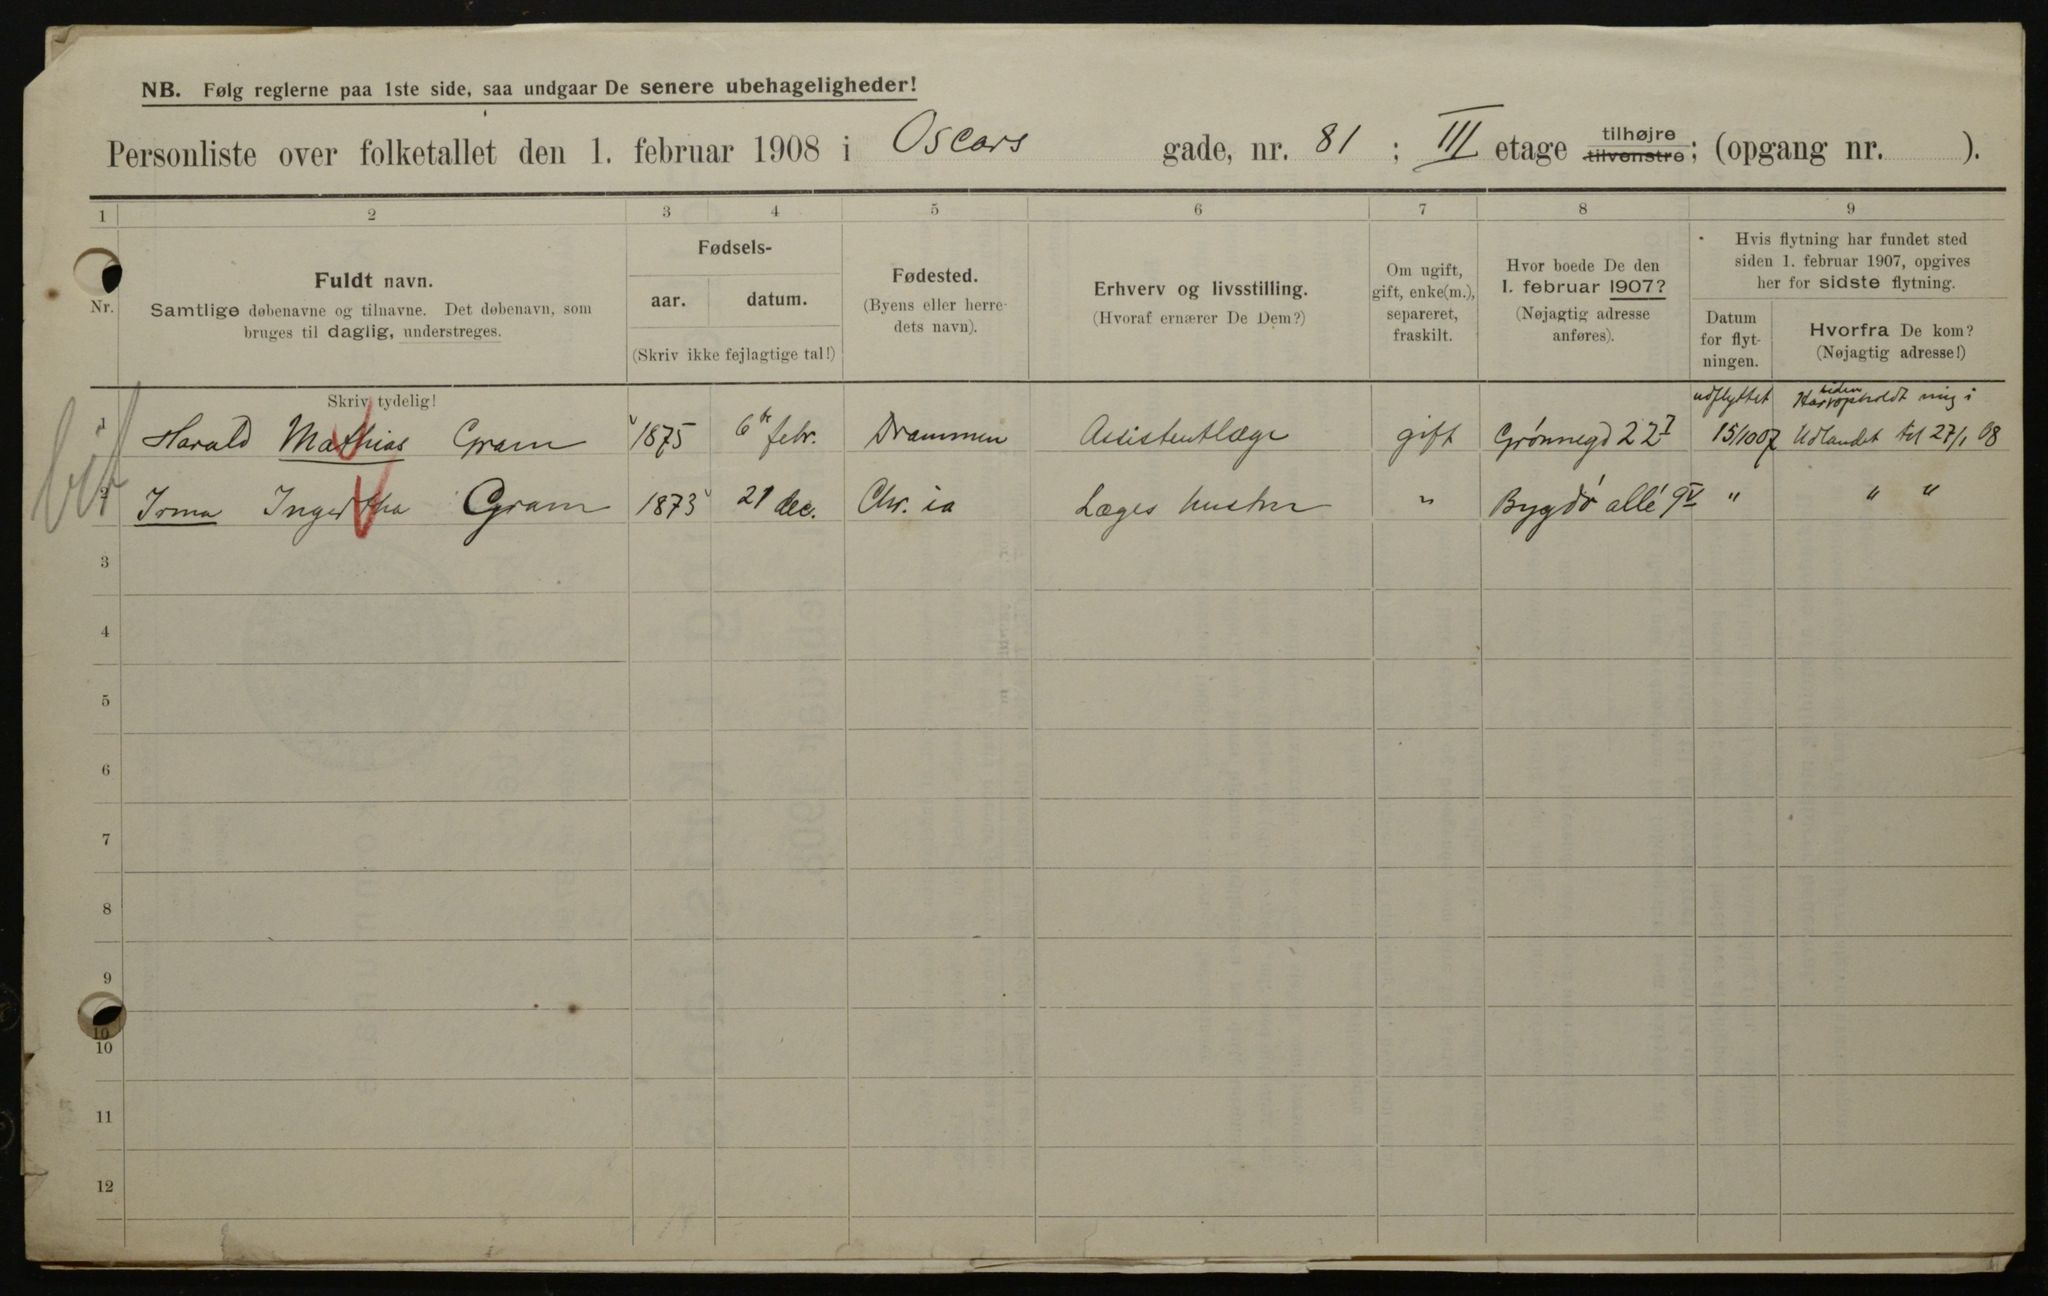 NB. Følg reglerne paa 1ste side, saa undgaar De senere ubehageligheder!
Personliste over folketallet den 1. februar 1908 i Oscars gade, nr. 81 ; III etage tilhøjre tilvenstre; (opgang nr. ).
1 2 3 4 5 6 7 8 9
Nr.
Fuldt navn.
Samtlige døbenavne og tilnavne. Det døbenavn, som
bruges til daglig, understreges.
Skriv tydelig!
Fødsels-
aar. datum.
(Skriv ikke fejlagtige tal!)
Fødested.
(Byens eller herre-
dets navn).
Erhverv og livsstilling.
(Hvoraf ernærer De Dem?)
Om ugift,
gift, enke(m.),
separeret,
fraskilt.
Hvor boede De den
1. februar 1907?
(Nøjagtig adresse
anføres).
Hvis flytning har fundet sted
siden 1. februar 1907, opgives
her for sidste flytning.
Datum
for flyt-
ningen.
Hvorfra De kom?
(Nøjagtig adresse!)
udflyttet Har siden opholdt mig i
1 Harald Mathias Gram 1875 6te febr. Drammen Assistentlæge gift Grønnegd 22 I 15/10 07 Udlandet til 27/1 08
2 Irma Gram 1873 21 dec. Chr. ia Læges hustru " Bygdø allé 9 IV " " "
3
4
5
6
7
8
9
10
10
11
12